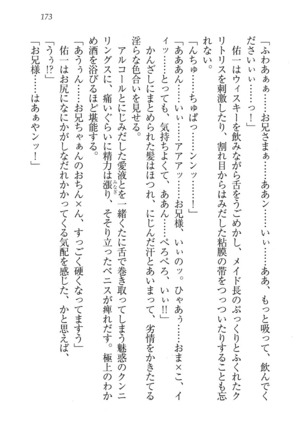 173
「ふわあぁ……お兄さまぁ……ああン……いぃ……ああ、もっと吸って、飲んでく
ださいぃぃ……っ！」
佑一はウィスキーを飲みながら舌をうごめかし、メイド長のぷっくりとふくれたク
リトリスを刺激したり、割れ目からはみだした粘膜の帯をつついたりすることも忘
れない。
「んちゅ……ちゅぱっ……ンンッ……！」
「あああん……いい……アアアッ……お兄様、いぃのッ。ひゃあぅ……おま×こ、イ
イッ……とっても、気持ちよくて……ぺろぺろ、いぃぃ!!」
かんざしにまとめられた髪はほつれ、にじんだ汗とあいまって、劣情をかきたてる
淫らな色合いを見せていく。
アルコールとにじみだした愛液とを一緒くたに舌で巻き取ってしまう魅惑のクンニ
に没頭し、痛いぐらいに精力は漲り、そそり立ったペニスが痺れだす。極上のわか
め酒を浴びるほど堪能する。
「あっ……お兄ちゃぁんのおち×ん、すっごく硬くなってますう」
「うぅ!?」
佑一はお尻になにかがしなだれかかってくる気配を感じた、かと思えば、
「お兄様……はぁぁヤンッ！」